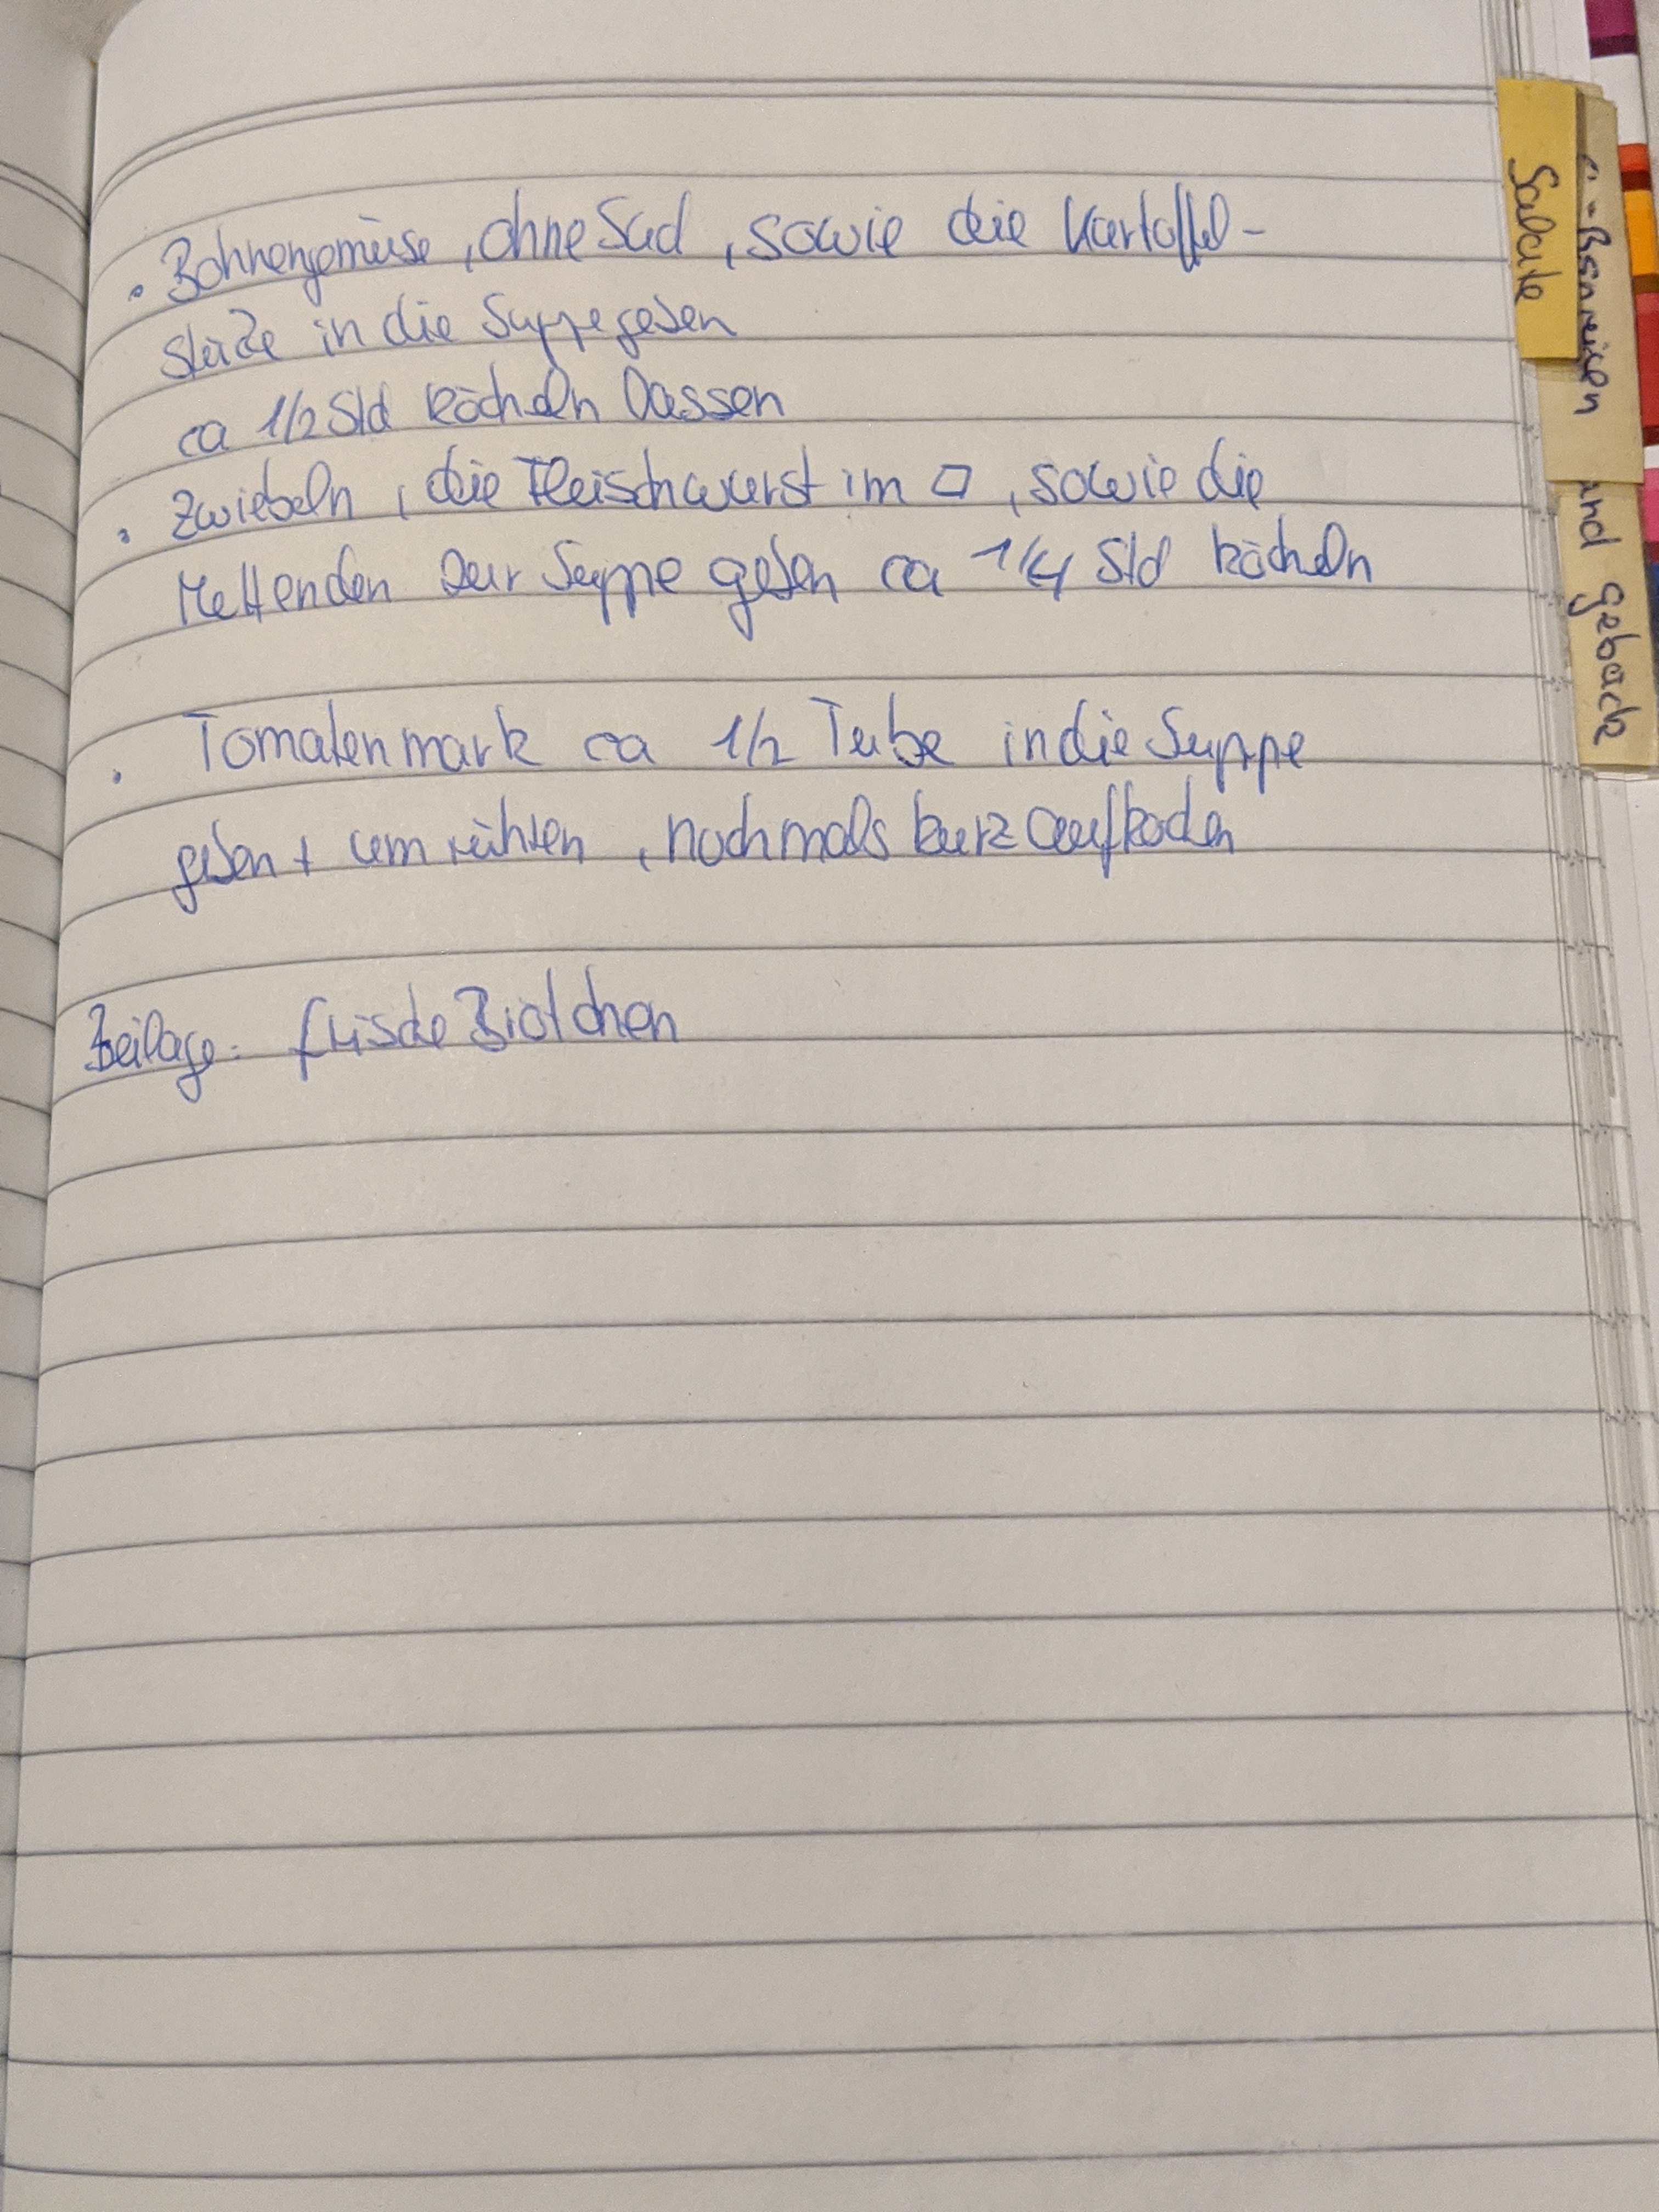 • Bohnengemüse, ohne Sud, sowie die Kartoffel-
stücke in die Suppe geben
ca 1/2 Std köcheln lassen
• Zwiebeln, die Fleischwurst im ▱, sowie die
Mettenden zur Suppe geben ca 1/4 Std köcheln
• Tomatenmark ca 1/2 Tube in die Suppe
geben + umrühren, nochmals kurz aufkochen
Beilage: frische Brötchen
Salate
und Gebäck